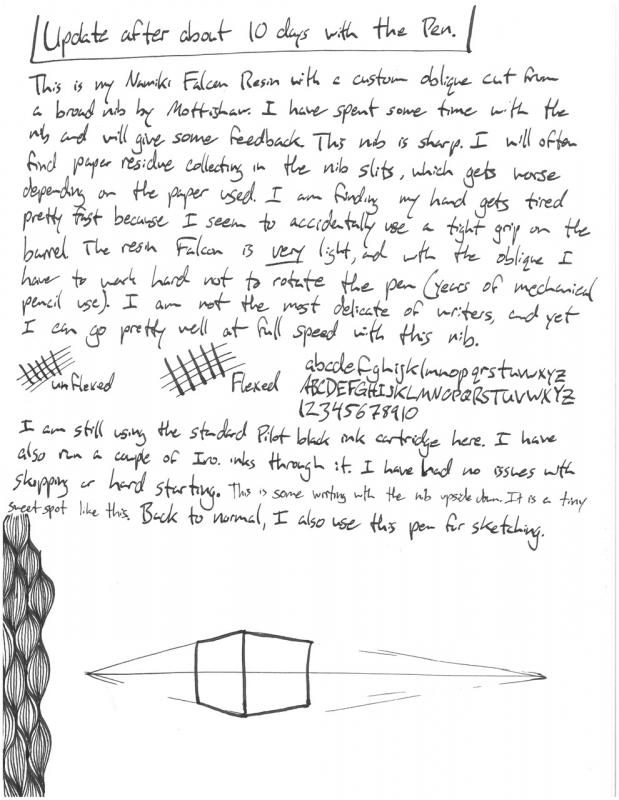 Update after about 10 days with the Pen.
This is my Namiki Falcon Resin with a custom oblique cut from
a broad nib by Mottishaw. I have spent some time with the
nib and will give some feedback. This nib is sharp. I will often
find paper residue collecting in the nib slits, which gets worse
depending on the paper used. I am finding my hand gets tired
pretty fast because I seem to accidentally use a tight grip on the
barrel. The resin Falcon is very light, and with the oblique I
have to work hard not to rotate the pen (years of mechanical
pencil use). I am not the most delicate of writers, and yet
I can go pretty well at full speed with this nib.
unflexed
Flexed
abcdefghijklmnopqrstuvwxyz
ABCDEFGHIJKLMNOPQRSTUVWXYZ
12345678910
I am still using the standard Pilot black ink cartridge here. I have
also run a couple of Iro. inks through it. I have had no issues with
skipping or hard starting. This is some writing with the nib upside down. It is a tiny
sweet spot like this. Back to normal, I also use this pen for sketching.